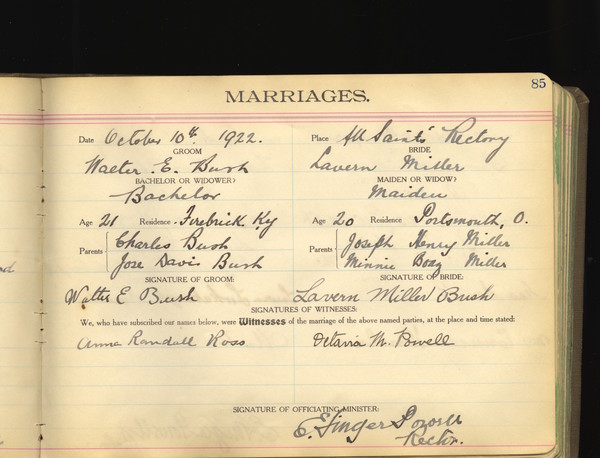 85
MARRIAGES.
Date October 10th. 1922. Place All Saints' Rectory
GROOM BRIDE
Walter E. Bush Lavern Miller
BACHELOR OR WIDOWER? MAIDEN OR WIDOW?
Bachelor Maiden
Age 21 Residence Firebrick Ky Age 20 Residence Portsmouth, O.
Parents Charles Bush Parents Joseph Henry Miller
Jose Davis Bush Minnie Boay Miller
SIGNATURE OF GROOM: SIGNATURE OF BRIDE:
Walter E Bush Lavern Miller Bush
SIGNATURES OF WITNESSES:
We, who have subscribed our names below, were Witnesses of the marriage of the above named parties, at the place and time stated:
Anna Randall Ross Octavia M. Powell
SIGNATURE OF OFFICIATING MINISTER:
E. Powell
Rector.